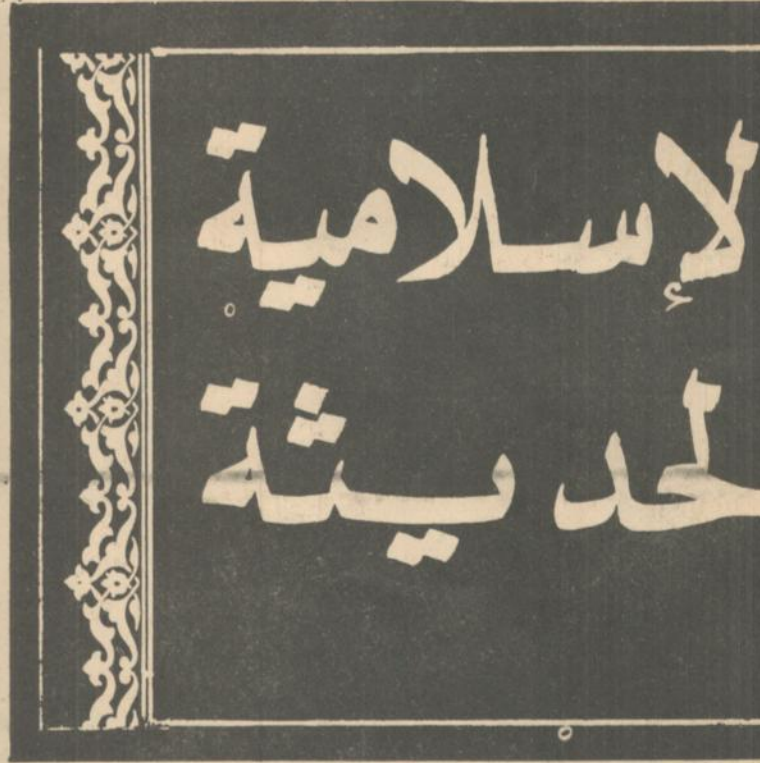 لإسلامية
لحديثة